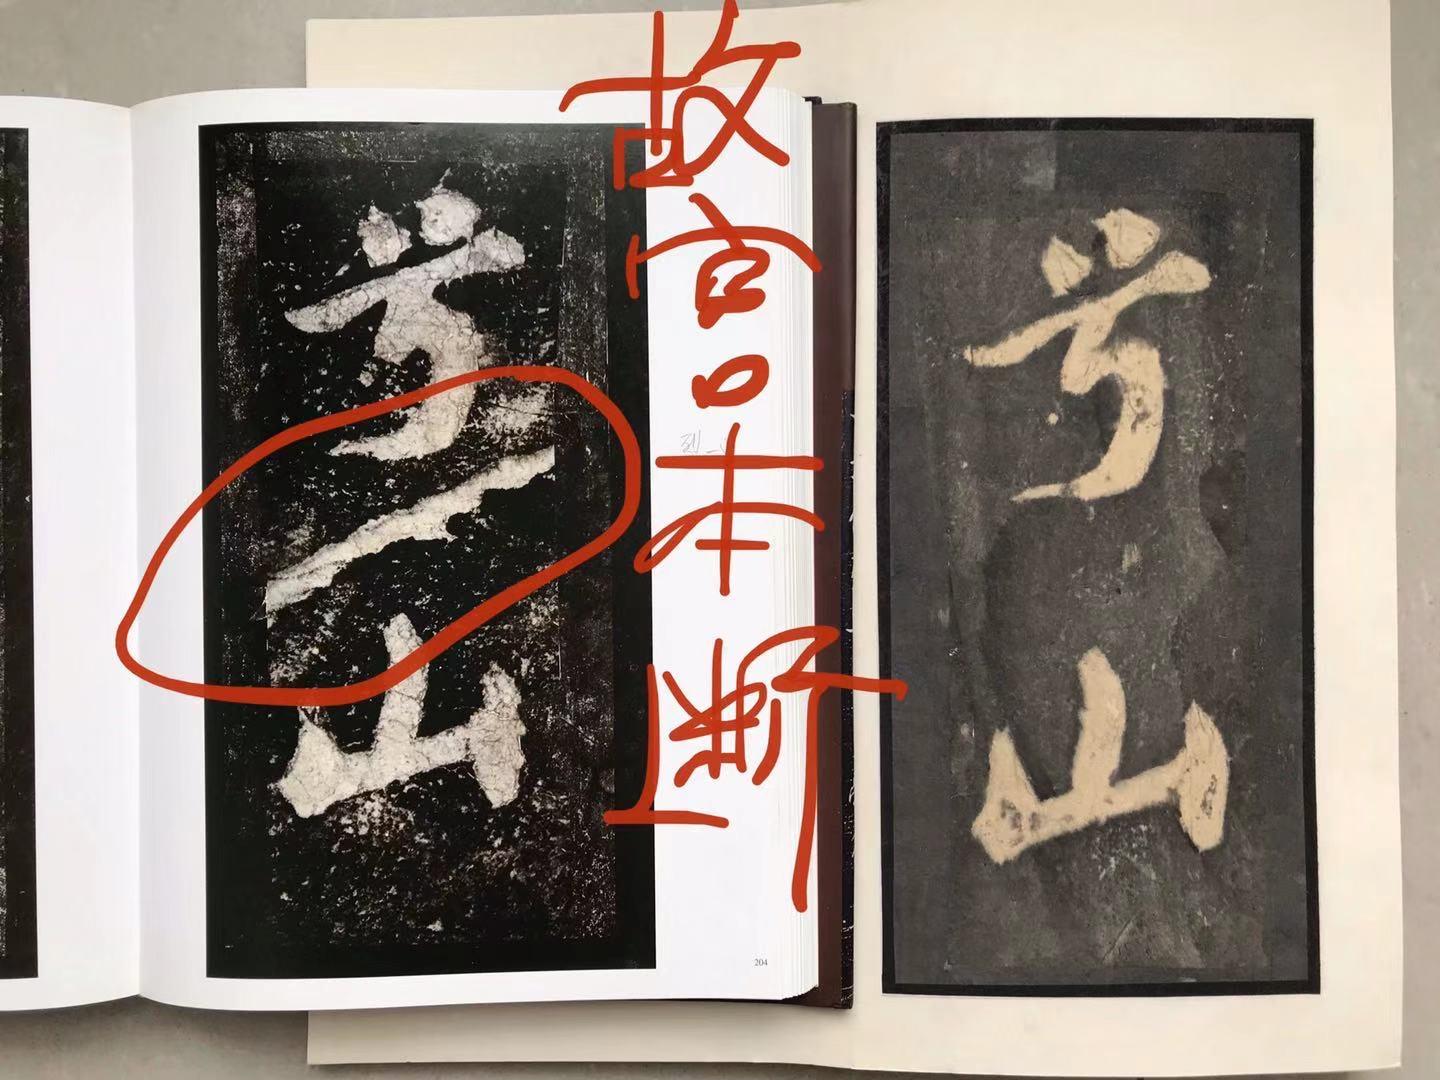 故宫本断
山
204
山